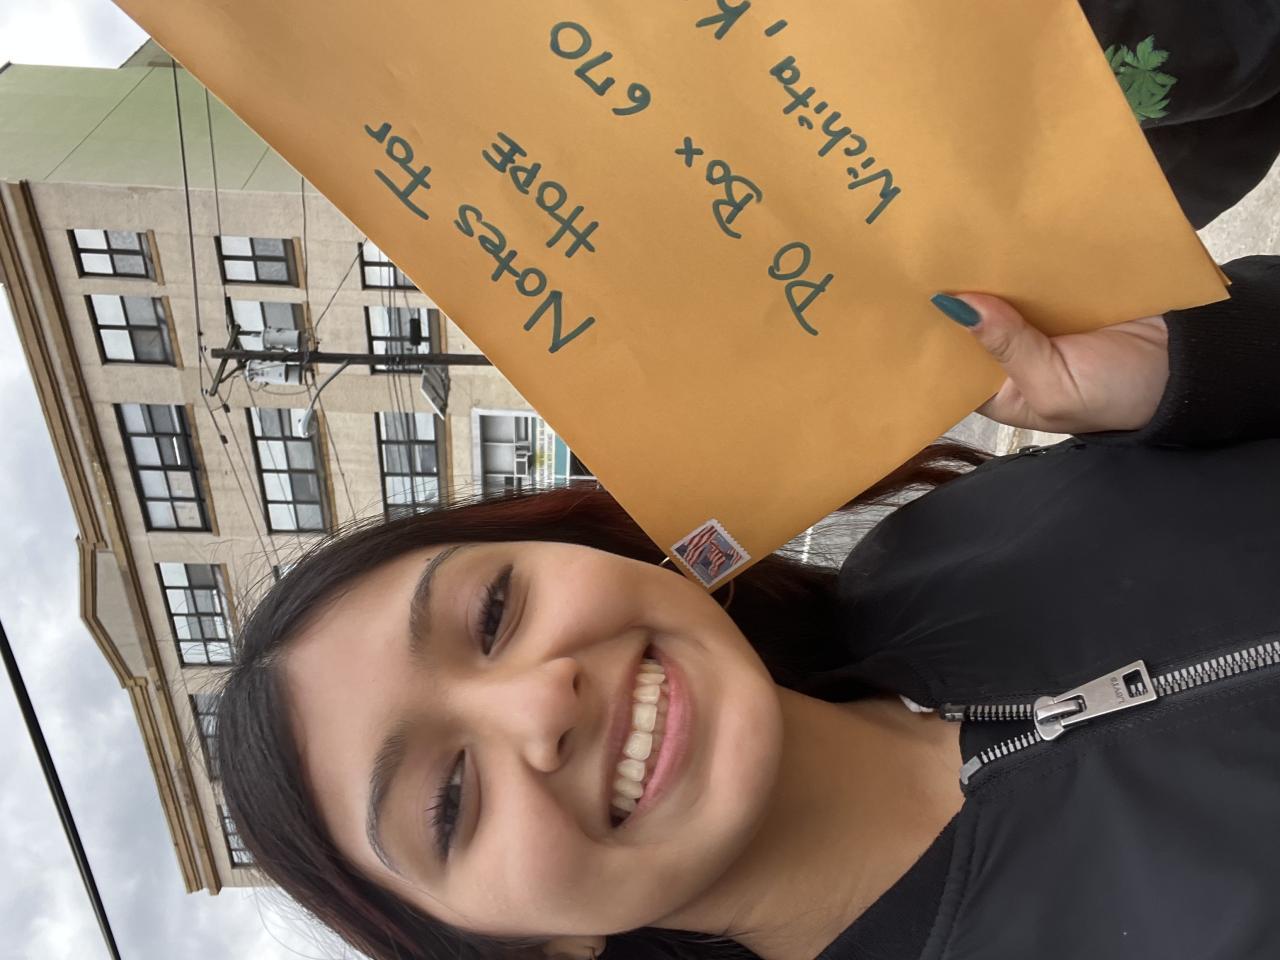 Notes For
HOPE
PO Box 670
Wichita, K
LEVI'S